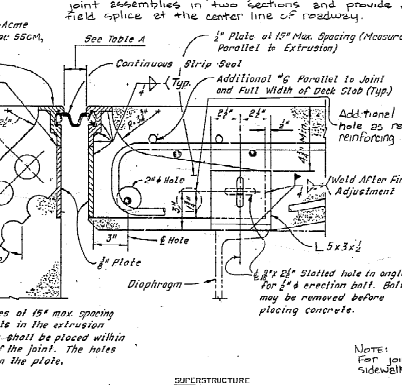 joint assemblies in two sections and provide
field splice at the center line of roadway.
Acme
See Table A
½" Plate at 15" Max. Spacing (Measured
Parallel to Extrusion)
Continuous Strip Seal
Additional #6 Parallel to Joint
and Full Width of Deck Slab (Typ.)
(Typ.)
4
2½" 2½"
Additional
hole as re
reinforcing
2" ϕ Hole
Weld After Fin
Adjustment
4
3"
℄ Hole
L 5x3x½
Plate
Diaphragm
x 2½" Slotted hole in angle
for ½" ϕ erection bolt. Bolt
may be removed before
placing concrete.
es at 15" max. spacing
ts in the extrusion
shall be placed within
f the joint. The holes
n the plate.
NOTE:
For joi
sidewalk
SUPERSTRUCTURE